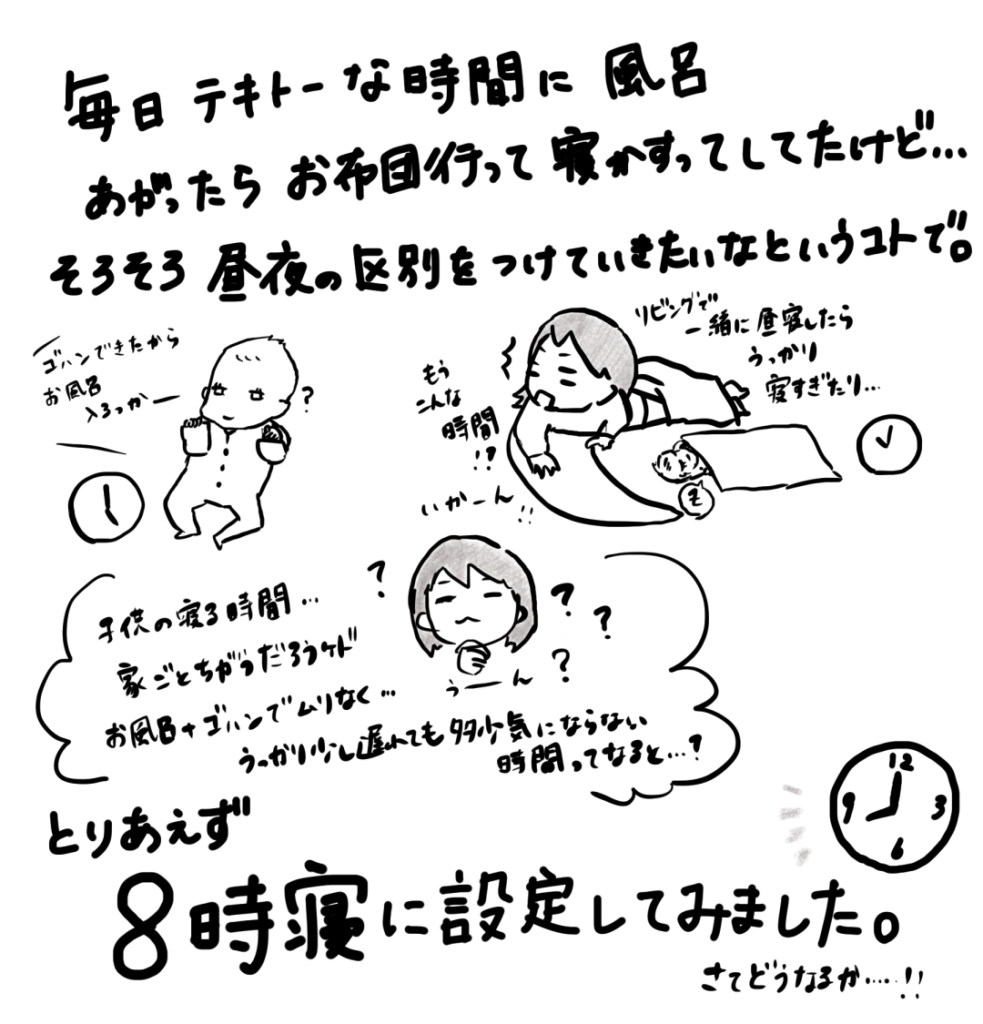 毎日 テキトーな時間に 風呂
あがったら お布団行って 寝かすってしてたけど…
そろそろ 昼夜の区別をつけていきたいなというコトで。
ゴハンできたから
お風呂
入ろっかー
?
もう
こんな
時間
!?
いかーん!!
リビングで
一緒に昼寝したら
うっかり
寝すぎたり…
z
子供の寝る時間…
家ごとちがうだろうケド
お風呂+ゴハンでムリなく…
うっかり少し遅れても多少気にならない
時間ってなると…?
?
?
?
?
うーん
12
9
3
6
とりあえず
8時寝に設定してみました。
さてどうなるか……!!